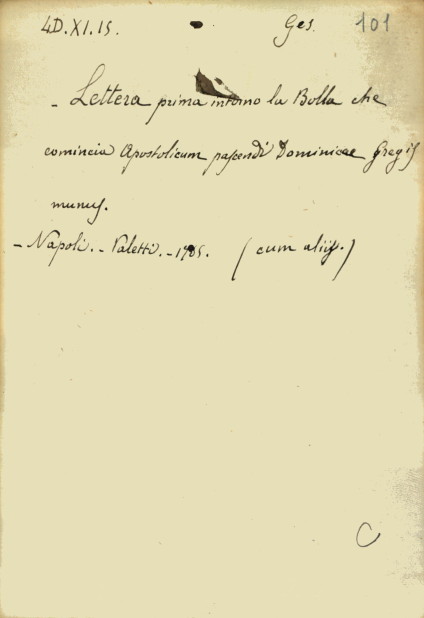 4D.XI.15. Ges. 101
- Lettera prima intorno la Bolla che
comincia Apostolicum pascendi Dominicae Gregis
munus.
- Napoli. - Valetti. - 1765. (cum aliis.)
C